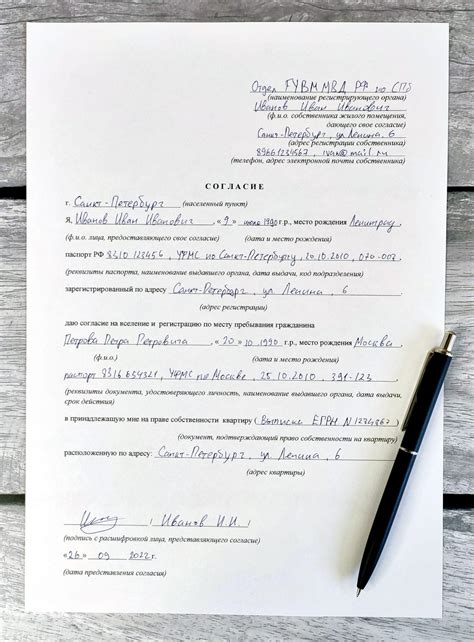 Отдел ГУВМ МВД РФ по СПб
(наименование регистрирующего органа)
Иванов Иван Иванович
(ф.и.о. собственника жилого помещения,
дающего свое согласие)
Санкт-Петербург, ул Ленина, 6
(адрес регистрации собственника)
89661234567, ivan@mail.ru
(телефон, адрес электронной почты собственника)
СОГЛАСИЕ
г. Санкт-Петербург (населенный пункт)
Я, Иванов Иван Иванович, «9» июля 1990 г.р., место рождения Ленинград,
(ф.и.о. лица, предоставляющего свое согласие) (дата и место рождения)
паспорт РФ 8310 123456, УФМС по Санкт-Петербургу, 20.10.2010, 070-007,
(реквизиты паспорта, наименование выдавшего органа, дата выдачи, код подразделения)
зарегистрированный по адресу Санкт-Петербург, ул. Ленина, 6
(адрес регистрации)
даю согласие на вселение и регистрацию по месту пребывания гражданина
Петрова Петра Петровича, «20» 10 1990 г.р., место рождения Москва,
(ф.и.о.) (дата и место рождения)
паспорт 8316 654321, УФМС по Москве, 25.10.2010, 391-123
(реквизиты документа, удостоверяющего личность, наименование выдавшего органа, дата выдачи,
срок действия)
в принадлежащую мне на праве собственности квартиру (Выписка ЕГРН N 1234867)
(документ, подтверждающий право собственности на квартиру)
расположенную по адресу: Санкт-Петербург, ул Ленина, 6
(адрес квартиры)
/ Иванов И.И. /
(подпись с расшифровкой лица, представляющего согласие)
«26» 09 2022 г.
(дата представления согласия)